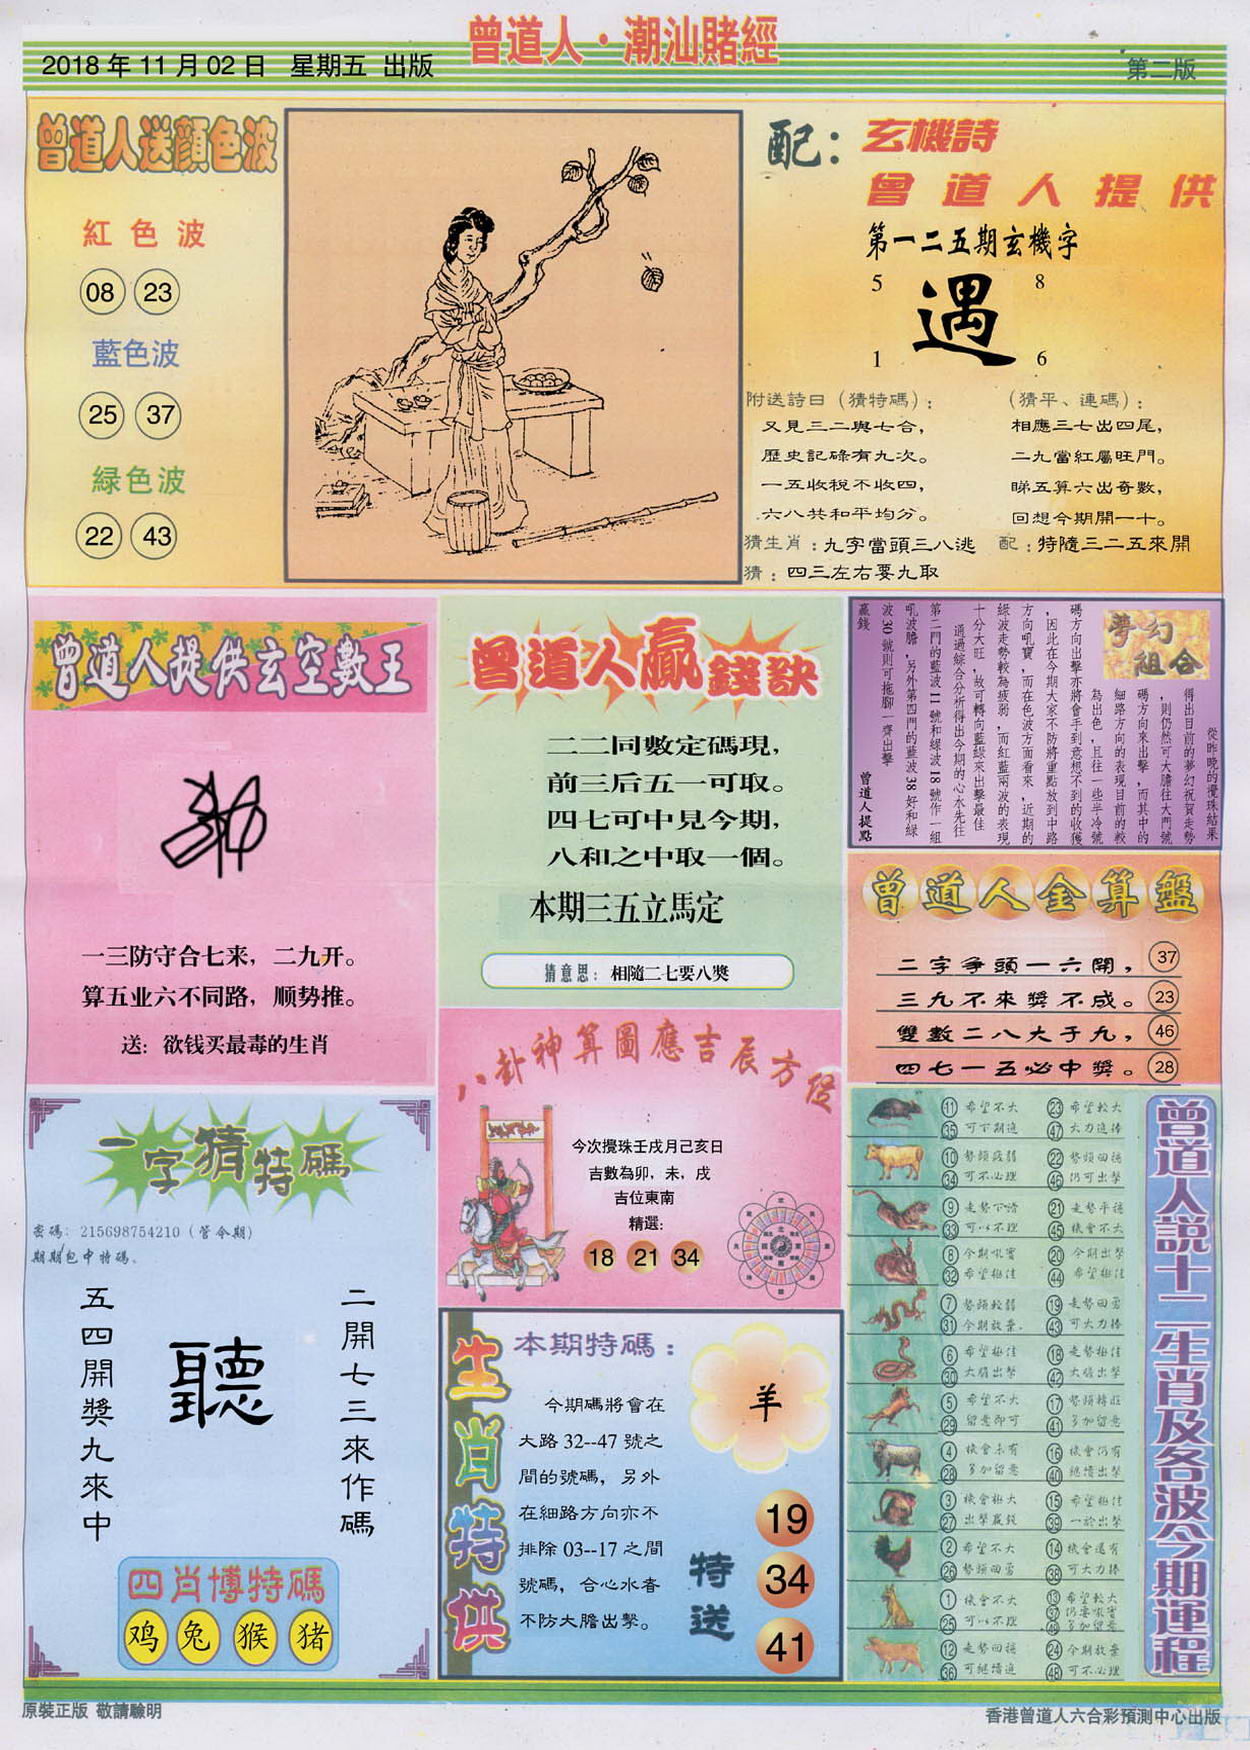 曾道人·潮汕賭經
2018年11月02日 星期五 出版
第二版
曾道人送顏色波
紅色波
08 23
藍色波
25 37
緑色波
22 43
配：玄機詩
曾道人提供
第一二五期玄機字
5 8
遇
1 6
附送詩曰（猜特碼）：
又見三二與七合，
歷史記碌有九次。
一五收稅不收四，
六八共和平均分。
（猜平、連碼）：
相應三七出四尾，
二九當紅屬旺門。
睇五算六出奇數，
回想今期開一十。
猜生肖：九字當頭三八逃 配：特隨三二五來開
猜：四三左右要九取
曾道人提供玄空數王
一三防守合七来，二九开。
算五业六不同路，顺势推。
送：欲钱买最毒的生肖
曾道人贏錢訣
二二同數定碼現，
前三后五一可取。
四七可中見今期，
八和之中取一個。
本期三五立馬定
猜意思：相隨二七要八獎
夢幻組合
從昨晚的攪珠結果
得出目前的夢幻祝賀走勢
，則仍然可大膽往大門號
碼方向來出擊，而其中的
細路方向的表現目前的較
為出色，且往一些半冷號
碼方向出擊亦將會手到意想不到的收獲
，因此在今期大家不防將重點放到中路
方向吼寶，而在色波方面看來，近期的
綠波走勢較為疲弱，而紅藍兩波的表現
十分大旺，故可轉向藍綠來出擊最佳
通過綜合分析得出今期的心水先往
第二門的藍波11號和綠波18號作一組
吼波膽，另外第四門的藍波38好和綠
波30號則可拖腳一齊出擊
贏錢 曾道人提點
曾道人金算盤
二字爭頭一六開，37
三九不來獎不成。23
雙數二八大于九，46
四七一五必中獎。28
八卦神算圖應吉辰方位
今次攪珠壬戌月己亥日
吉數為卯，未，戌
吉位東南
精選：
18 21 34
一字猜特碼
密碼：215698754210（管令期）
期期包中特碼。
二開七三來作碼
聽
五四開獎九來中
四肖博特碼
鸡 兔 猴 猪
生肖特供
本期特碼：
今期碼將會在
大路32--47號之
間的號碼，另外
在細路方向亦不
排除03--17之間
號碼，合心水者
不防大膽出擊。
羊
特送
19
34
41
曾道人説十二生肖及各波今期運程
11 希望不大 23 希望較大
35 可下期追 47 大力追捧
10 勢頭疲弱 22 勢頭回穩
34 可不必理 46 仍可出擊
9 走勢下滑 21 走勢平穩
33 可以不理 45 機會不大
8 今期吼寶 20 今期出擊
32 希望極佳 44 希望極佳
7 勢頭較弱 19 走勢回勇
31 今期放棄. 43 可大力捧
6 希望極佳 18 走勢極佳
30 大膽出擊 42 大膽出擊
5 希望不大 17 勢頭轉旺
29 留意即可 41 多加留意
4 機會未有 16 機會仍有
28 多加留意 40 繼續出擊
3 機會極大 15 希望極佳
27 出擊贏錢 39 一於出擊
2 希望不大 14 機會還有
26 勢頭回勇 38 可大力捧
1 機會不大 13 希望較大
25 可以不理 37 仍要吼實
49 多加留意
12 走勢回穩 24 今期放棄
36 可繼續追 48 可不必理
原裝正版 敬請驗明
香港曾道人六合彩預測中心出版